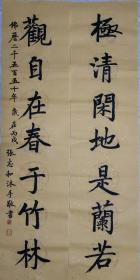 極清閑地是蘭若
觀自在春于竹林
佛曆二千五百五十年歲在丙戌張志和沐手敬書